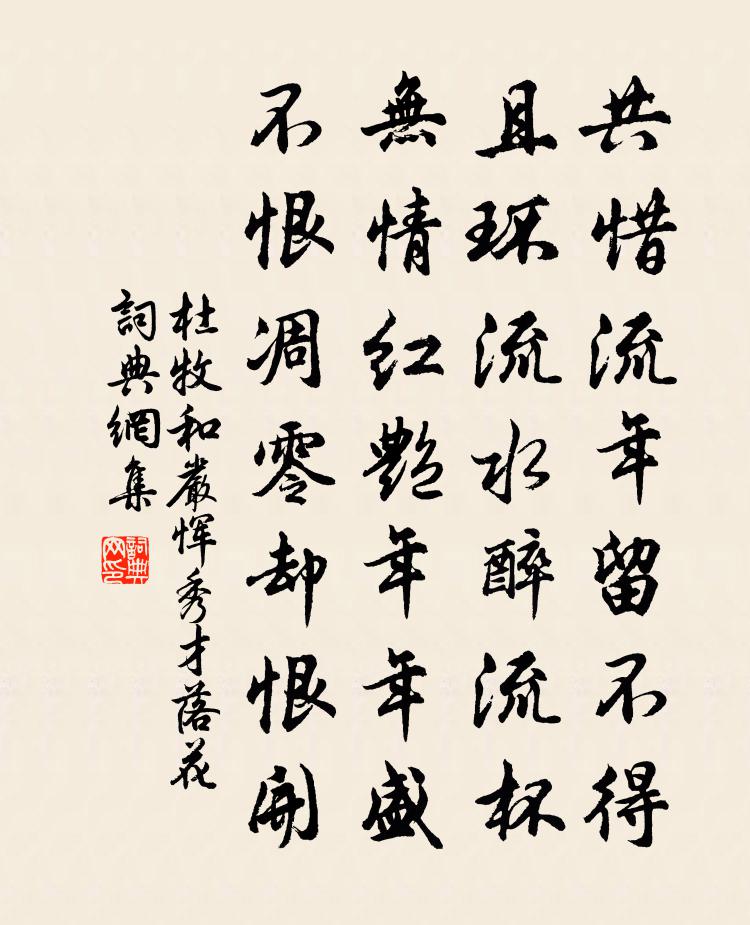 共惜流年留不得
且环流水醉流杯
無情红艷年年盛
不恨凋零却恨開
杜牧和嚴惲秀才落花
詞典網集
詞典网印